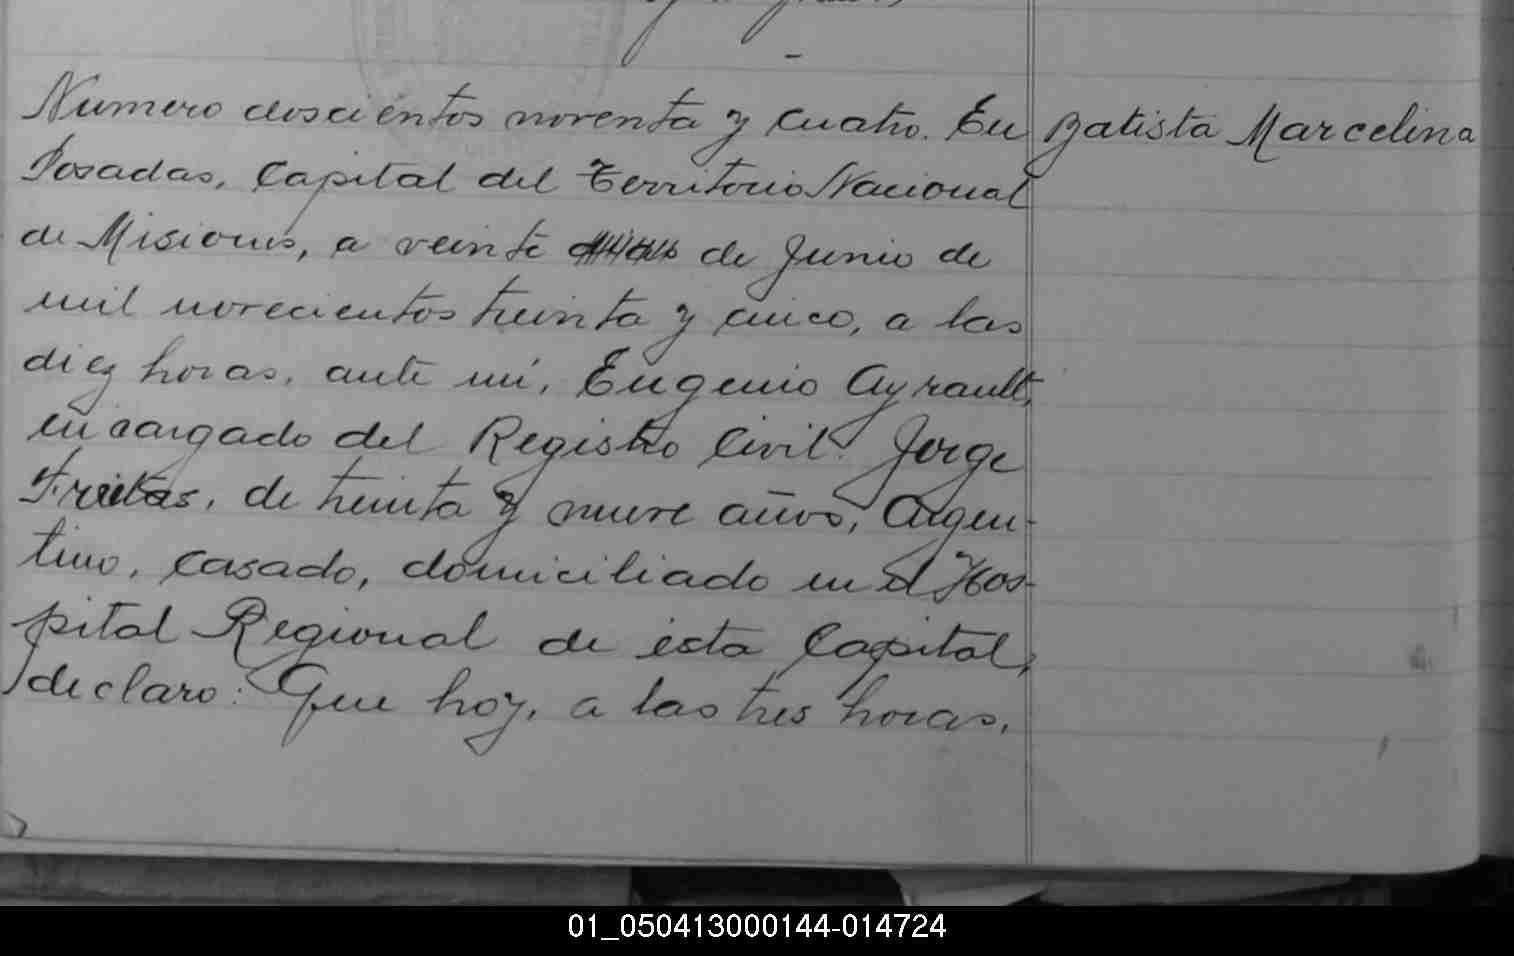 Numero doscientos noventa y cuatro. En
Batista Marcelina
Posadas, Capital del Territorio Nacional
de Misiones, a veinte de Junio de
mil novecientos treinta y cinco, a las
diez horas, ante mí, Eugenio Ayrault,
encargado del Registro Civil. Jorge
Freitas, de treinta y nueve años, Argen-
tino, casado, domiciliado en el Hos-
pital Regional de ésta Capital,
declaro: Que hoy, a las tres horas,
01_050413000144-014724